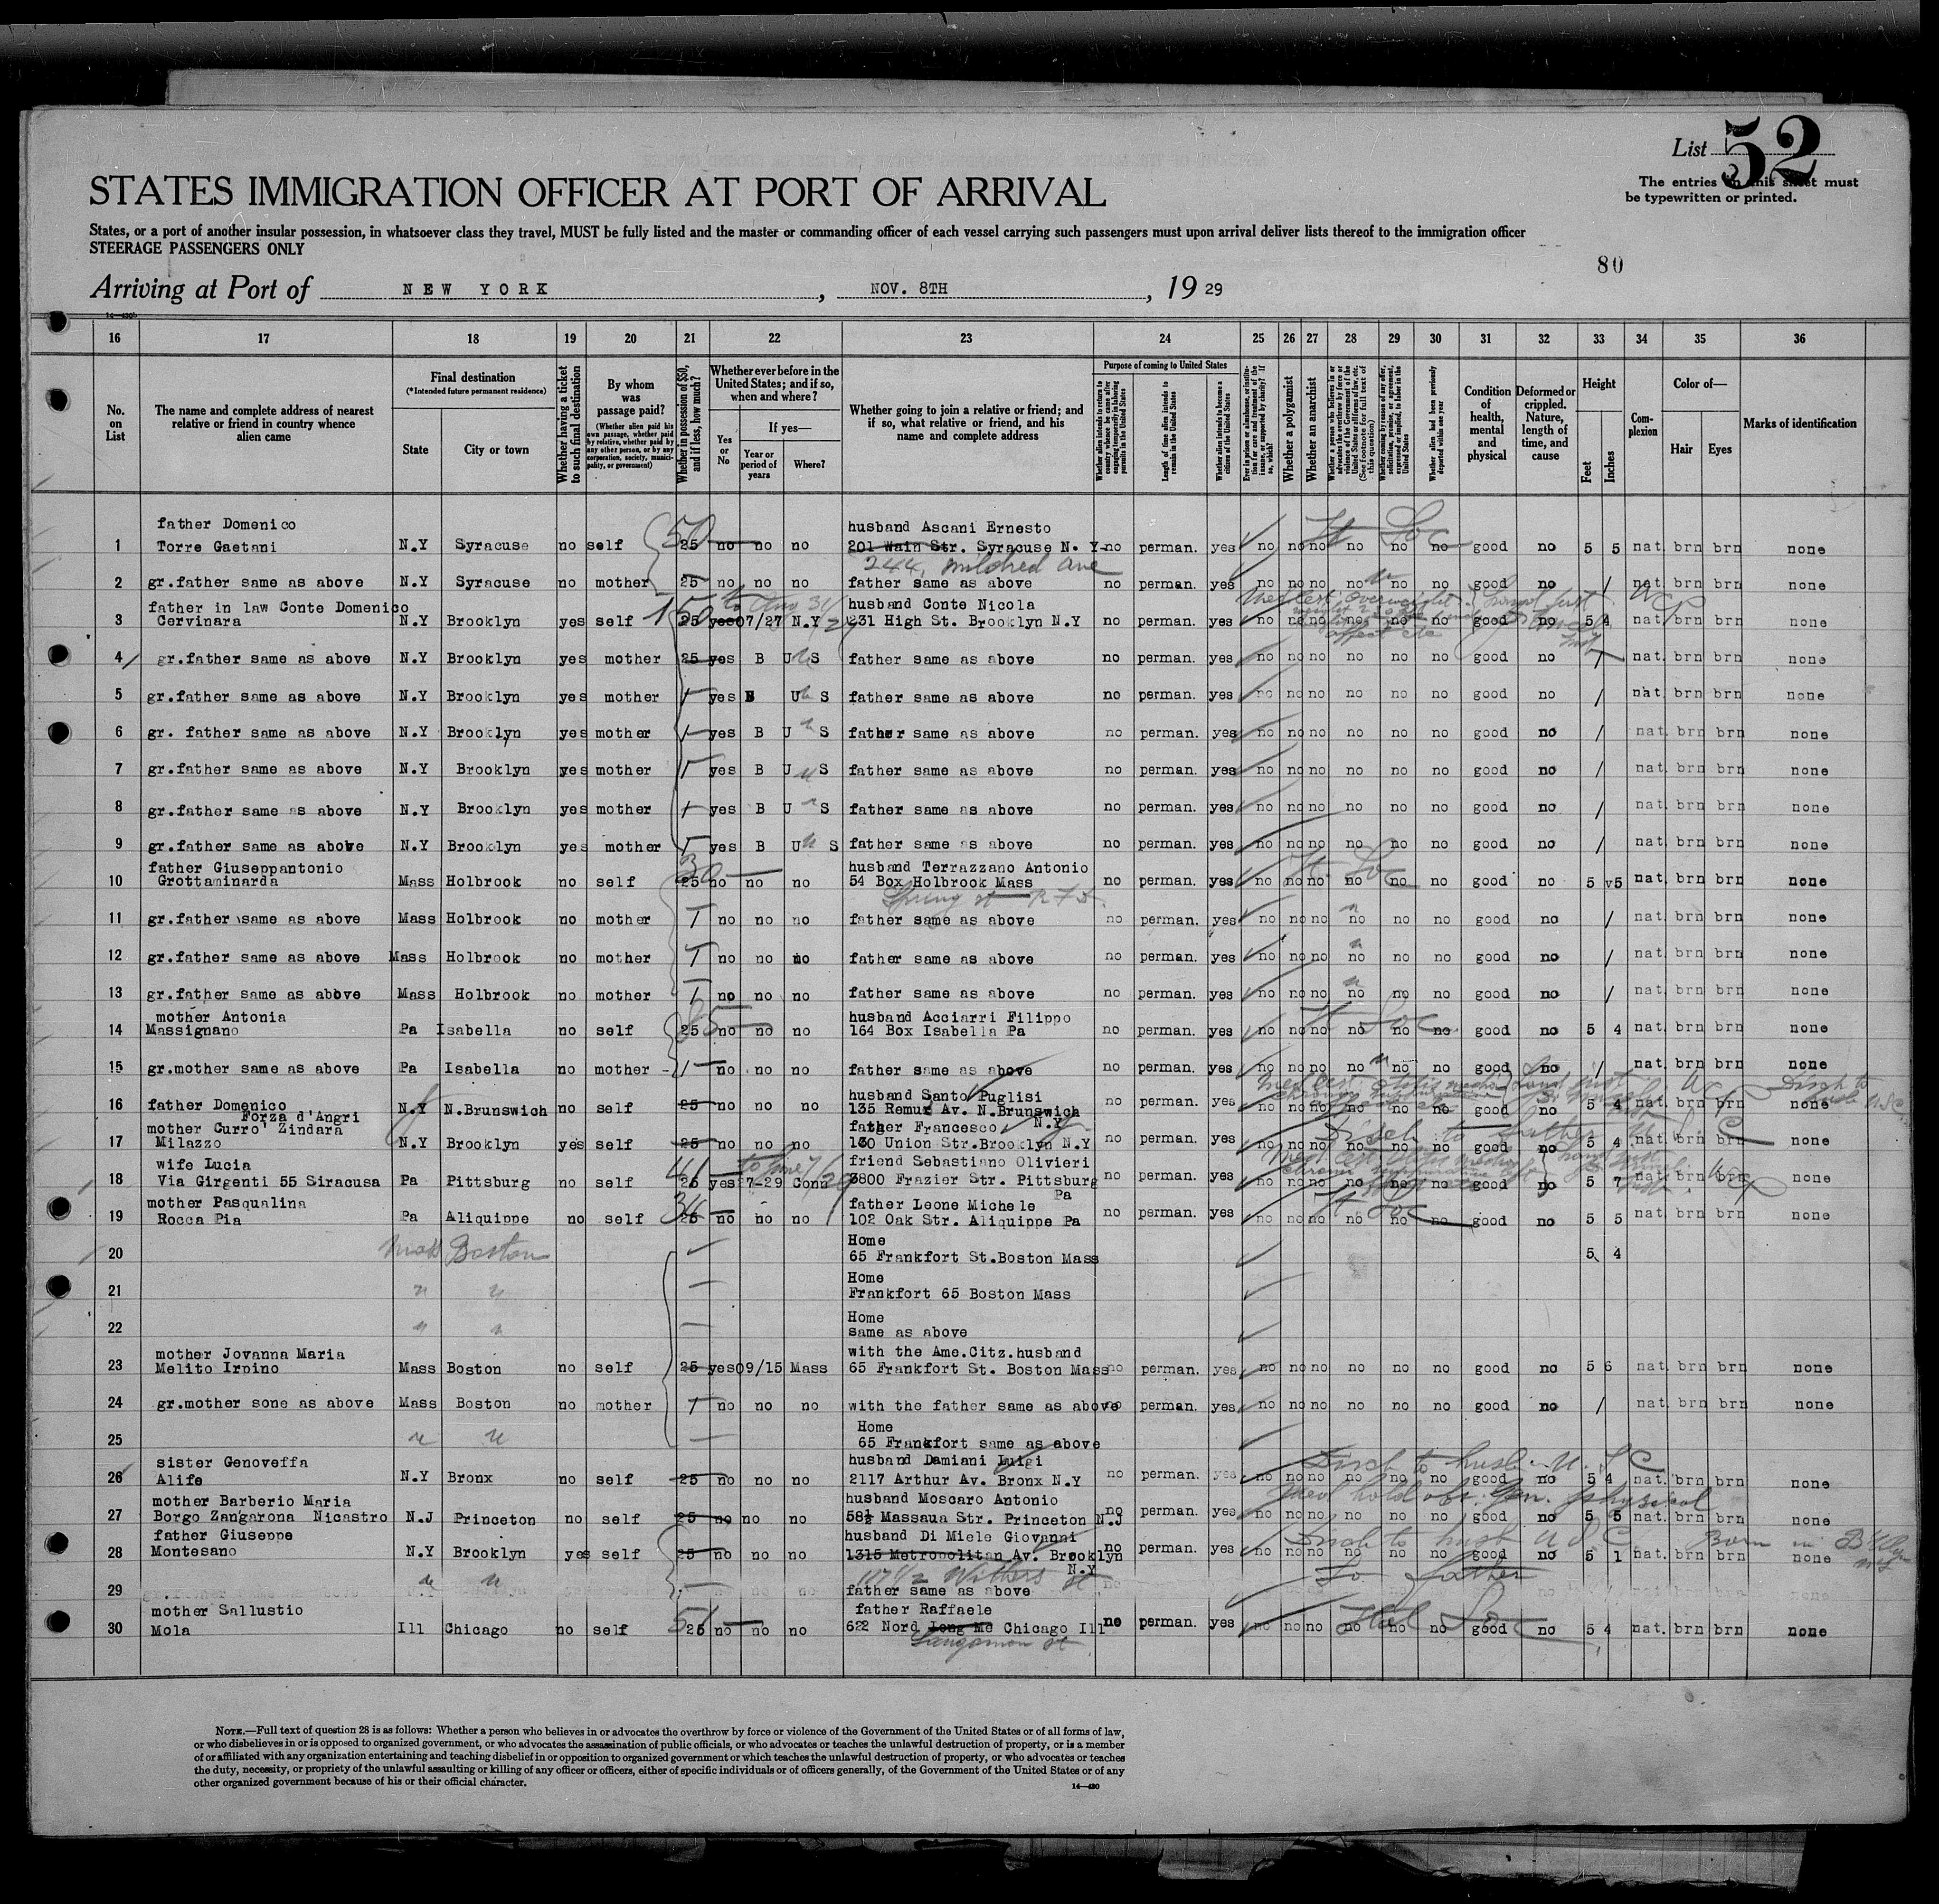 List 52
The entries on this sheet must
be typewritten or printed.
STATES IMMIGRATION OFFICER AT PORT OF ARRIVAL
States, or a port of another insular possession, in whatsoever class they travel, MUST be fully listed and the master or commanding officer of each vessel carrying such passengers must upon arrival deliver lists thereof to the immigration officer
STEERAGE PASSENGERS ONLY
80
Arriving at Port of NEW YORK, NOV. 8TH, 19 29
16 17 18 19 20 21 22 23 24 25 26 27 28 29 30 31 32 33 34 35 36
No. on List
The name and complete address of nearest relative or friend in country whence alien came
Final destination
(*Intended future permanent residence)
State
City or town
Whether having a ticket to such final destination
By whom was passage paid?
(Whether alien paid his own passage, whether paid by relative, whether paid by any other person, or by any corporation, society, municipality, or government)
Whether in possession of $50, and if less, how much?
Whether ever before in the United States; and if so, when and where?
Yes or No
If yes—
Year or period of years
Where?
Whether going to join a relative or friend; and if so, what relative or friend, and his name and complete address
Purpose of coming to United States
Length of time alien intends to remain in the United States
Whether alien intends to become a citizen of the United States
Whether a polygamist
Whether an anarchist
Condition of health, mental and physical
Deformed or crippled. Nature, length of time, and cause
Height
Feet
Inches
Complexion
Color of—
Hair
Eyes
Marks of identification
1 father Domenico Torre Gaetani N.Y Syracuse no self 50 25 no no no husband Ascani Ernesto 201 Wain Str. Syracuse N.Y 244, Mildred Ave no perman. yes no no no no no no good no 5 5 nat. brn brn none
2 gr.father same as above N.Y Syracuse no mother 25 no no no father same as above no perman. yes no no no no no no good no / nat. brn brn none
3 father in law Conte Domenico Cervinara N.Y Brooklyn yes self 150 25 yes 07/27 N.Y husband Conte Nicola 231 High St. Brooklyn N.Y no perman. yes no no no no no no good no 5 4 nat. brn brn none
4 gr.father same as above N.Y Brooklyn yes mother 25 yes B U S father same as above no perman. yes no no no no no no good no / nat. brn brn none
5 gr.father same as above N.Y Brooklyn yes mother yes B U S father same as above no perman. yes no no no no no no good no / nat. brn brn none
6 gr. father same as above N.Y Brooklyn yes mother yes B U S father same as above no perman. yes no no no no no no good no / nat. brn brn none
7 gr.father same as above N.Y Brooklyn yes mother yes B U S father same as above no perman. yes no no no no no no good no / nat. brn brn none
8 gr.father same as above N.Y Brooklyn yes mother yes B U S father same as above no perman. yes no no no no no no good no / nat. brn brn none
9 gr.father same as above N.Y Brooklyn yes mother yes B U S father same as above no perman. yes no no no no no no good no / nat. brn brn none
10 father Giuseppantonio Grottaminarda Mass Holbrook no self 30 25 no no no husband Terrazzano Antonio 54 Box Holbrook Mass Spring st no perman. yes no no no no no no good no 5 5 nat. brn brn none
11 gr.father same as above Mass Holbrook no mother no no no father same as above no perman. yes no no no no no no good no / nat. brn brn none
12 gr.father same as above Mass Holbrook no mother no no no father same as above no perman. yes no no no no no no good no / nat. brn brn none
13 gr.father same as above Mass Holbrook no mother no no no father same as above no perman. yes no no no no no no good no / nat. brn brn none
14 mother Antonia Massignano Pa Isabella no self 25 no no no husband Acciarri Filippo 164 Box Isabella Pa no perman. yes no no no no no no good no 5 4 nat. brn brn none
15 gr.mother same as above Pa Isabella no mother no no no father same as above no perman. yes no no no no no no good no / nat. brn brn none
16 father Domenico Forza d'Angri N.Y N.Brunswich no self 25 no no no husband Santo Puglisi 135 Remur Av. N.Brunswich N.Y no perman. yes no no no no no no good no 5 4 nat. brn brn none
17 mother Curro' Zindara Milazzo N.Y Brooklyn yes self 25 no no no father Francesco 130 Union Str.Brooklyn N.Y no perman. yes no no no no no no good no 5 4 nat. brn brn none Disch to father
18 wife Lucia Via Girgenti 55 Siracusa Pa Pittsburg no self 25 yes 27-29 Conn friend Sebastiano Olivieri 3800 Frazier Str. Pittsburg Pa no perman. yes no no no no no no good no 5 7 nat. brn brn none
19 mother Pasqualina Rocca Pia Pa Aliquippe no self 34 25 no no no father Leone Michele 102 Oak Str. Aliquippe Pa no perman. yes no no no no no no good no 5 5 nat brn brn none
20 Mass Boston Home 65 Frankfort St.Boston Mass 5 4
21 " " Home Frankfort 65 Boston Mass
22 " " Home same as above
23 mother Jovanna Maria Melito Irpino Mass Boston no self 25 yes 09/15 Mass with the Ame.Citz.husband 65 Frankfort St. Boston Mass no perman. yes no no no no no no good no 5 6 nat. brn brn none
24 gr.mother sone as above Mass Boston no mother no no no with the father same as above no perman. yes no no no no no no good no / nat. brn brn none
25 " " Home 65 Frankfort same as above
26 sister Genoveffa Alife N.Y Bronx no self 25 no no no husband Damiani Luigi 2117 Arthur Av. Bronx N.Y no perman. yes no no no no no no good no 5 4 nat. brn brn none Disch to husb. U.S.C
27 mother Barberio Maria Borgo Zangarona Nicastro N.J Princeton no self 25 no no no husband Moscaro Antonio 58½ Massaua Str. Princeton N.J no perman. yes no no no no no no good no 5 5 nat. brn brn none Med hold obs. Gen. physical
28 father Giuseppe Montesano N.Y Brooklyn yes self 25 no no no husband Di Miele Giovanni 1315 Metropolitan Av. Brooklyn N.Y 117½ Withers St no perman. yes no no no no no no good no 5 1 nat. brn brn none Disch to husb U S C Born in
29 " " father same as above To father
30 mother Sallustio Mola Ill Chicago no self 51 25 no no no father Raffaele 622 Nord Chicago Ill Sangamon st no perman. yes no no no no no no good no 5 4 nat. brn brn none
NOTE.—Full text of question 28 is as follows: Whether a person who believes in or advocates the overthrow by force or violence of the Government of the United States or of all forms of law,
or who disbelieves in or is opposed to organized government, or who advocates the assassination of public officials, or who advocates or teaches the unlawful destruction of property, or is a member
of or affiliated with any organization entertaining and teaching disbelief in or opposition to organized government or which teaches the unlawful destruction of property, or who advocates or teaches
the duty, necessity, or propriety of the unlawful assaulting or killing of any officer or officers, either of specific individuals or of officers generally, of the Government of the United States or of any
other organized government because of his or their official character.
14—430